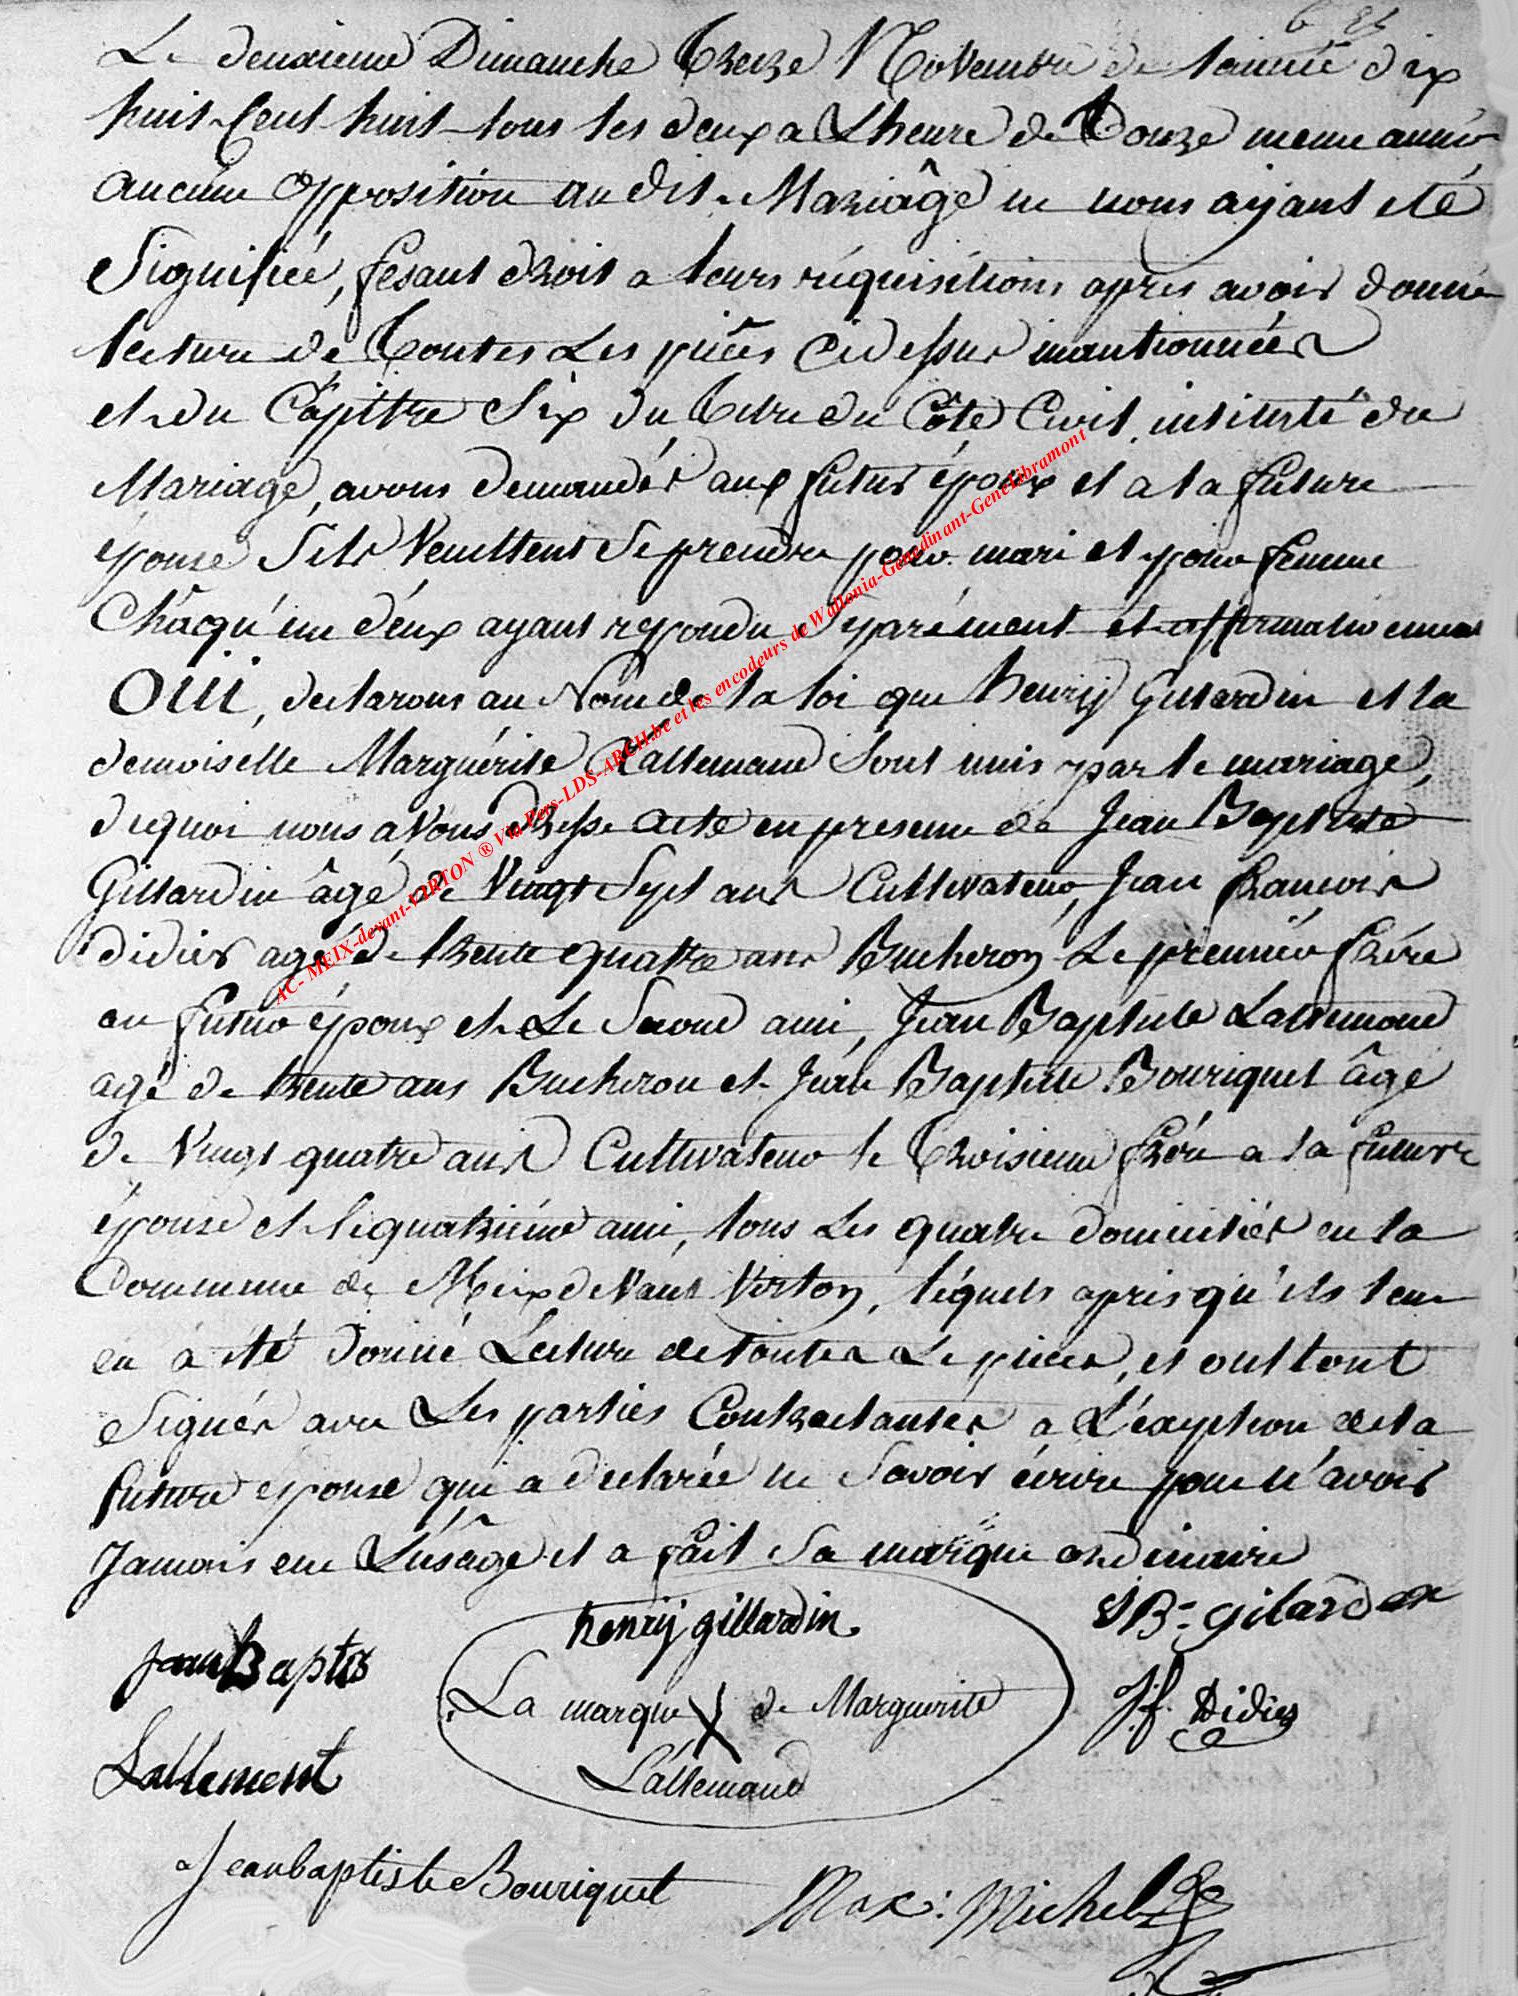 Le deuxieme Dimanche Treize Novembre de lannée dix
huit Cent huit tous les deux a L'heure de Douze meme année
aucune opposition au dit Mariâge ne nous aÿant eté
Signifieé, fesant droit a leurs réquisitions apres avoir donné
lecture de Toutes Les piêces Cidessus mantionnées
et du Câpitre Six du Titre du Côte Civil intitulé du
Mariage, avons demandés aux futur époux et a la future
épouse Sils Veullent Se prendre pour mari et pour femme
Châqu'un déux ayant repondu Séparément et affirmativement
OUi, declarons au Nom de la loi que henrÿ Gillardin et la
demoiselle Marguérite Lallemand Sont unis par le mariage,
dequoi nous avons dresse acte en presence de Jean Baptiste
Gillardin âgé de Vingt Sept ans Cultivateur, Jean francois
didier agé de trente quatre ans Bucheron Le premiér frére
au futur époux et Le Second ami, Jean Baptiste Lallemand
agé de trente ans Bucheron et Jean Baptiste Bouriquet âgé
de Vingt quatre ans Cultivateur le Troisieme frére a la future
épouse et le quatriéme ami, tous Les quatre domiciliés en la
Commune de Meix deVant Virton, léquels apris qu'ils leur
en à été donné Lecture de toutes Le pieces, et ont tout
Signés avec Les parties Contractantes a L'éxeption de la
future épouse qui a declarée ne Savoir écrire pour n'avoir
Jamais eue L'usâge et a fait Sa marque ordinaire
henrÿ gillardin
JB- gilardin
jean Baptis
La marque X de Marguerite
J.f. Didier
Lallement
Lallemand
Jeanbaptiste Bouriquet
Max: Michel
AC- MEIX-devant-VIRTON ® Via Pers-LDS-ARCH.be et les encodeurs de Wallonia-Genedinant-GeneLibramont